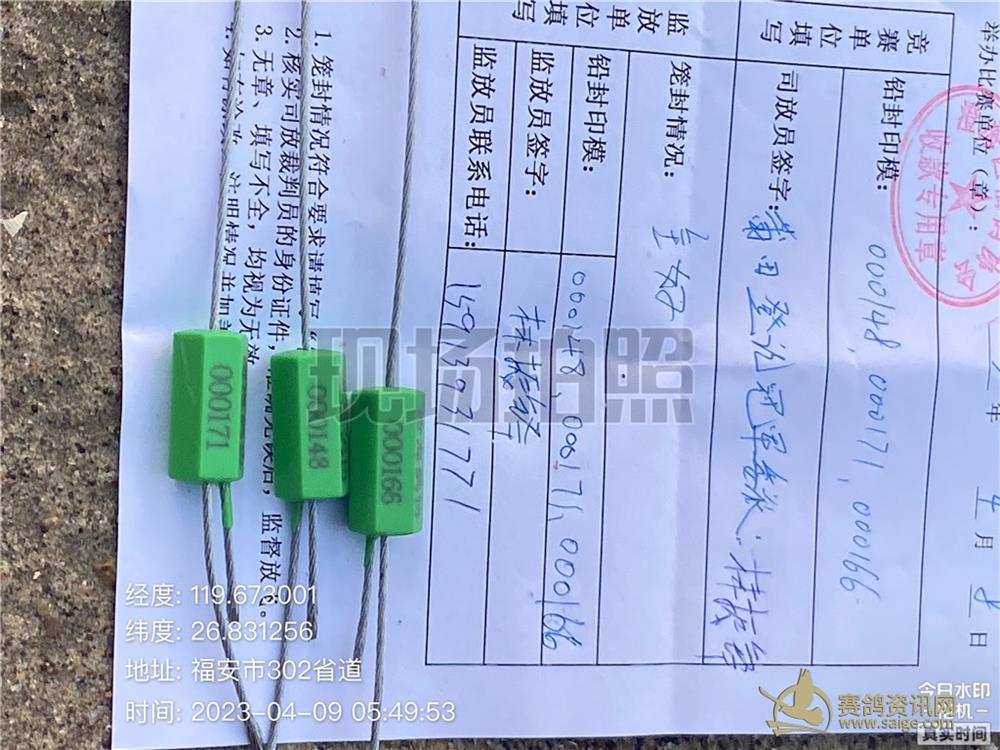 举办比赛单位(章):
收款专用章
年 月 日
竞赛单位填写
铅封印模: 000148, 000171, 000166
司放员签字: 莆田登冠军
笼封情况: 完好
监放单位填写
铅封印模: 000148, 000171, 000166
监放员签字: 林
监放员联系电话: 15913931771
1. 笼封情况符合要求请填写“
2. 核实司放裁判员的身份证件,
后, 监督放飞。
3. 无章、填写不全, 均视为无效
000171
000148
000166
现场拍照
经度: 119.673001
纬度: 26.831256
地址: 福安市302省道
时间: 2023-04-09 05:49:53
今日水印
相机
真实时间
赛鸽资讯网
www.saige.com